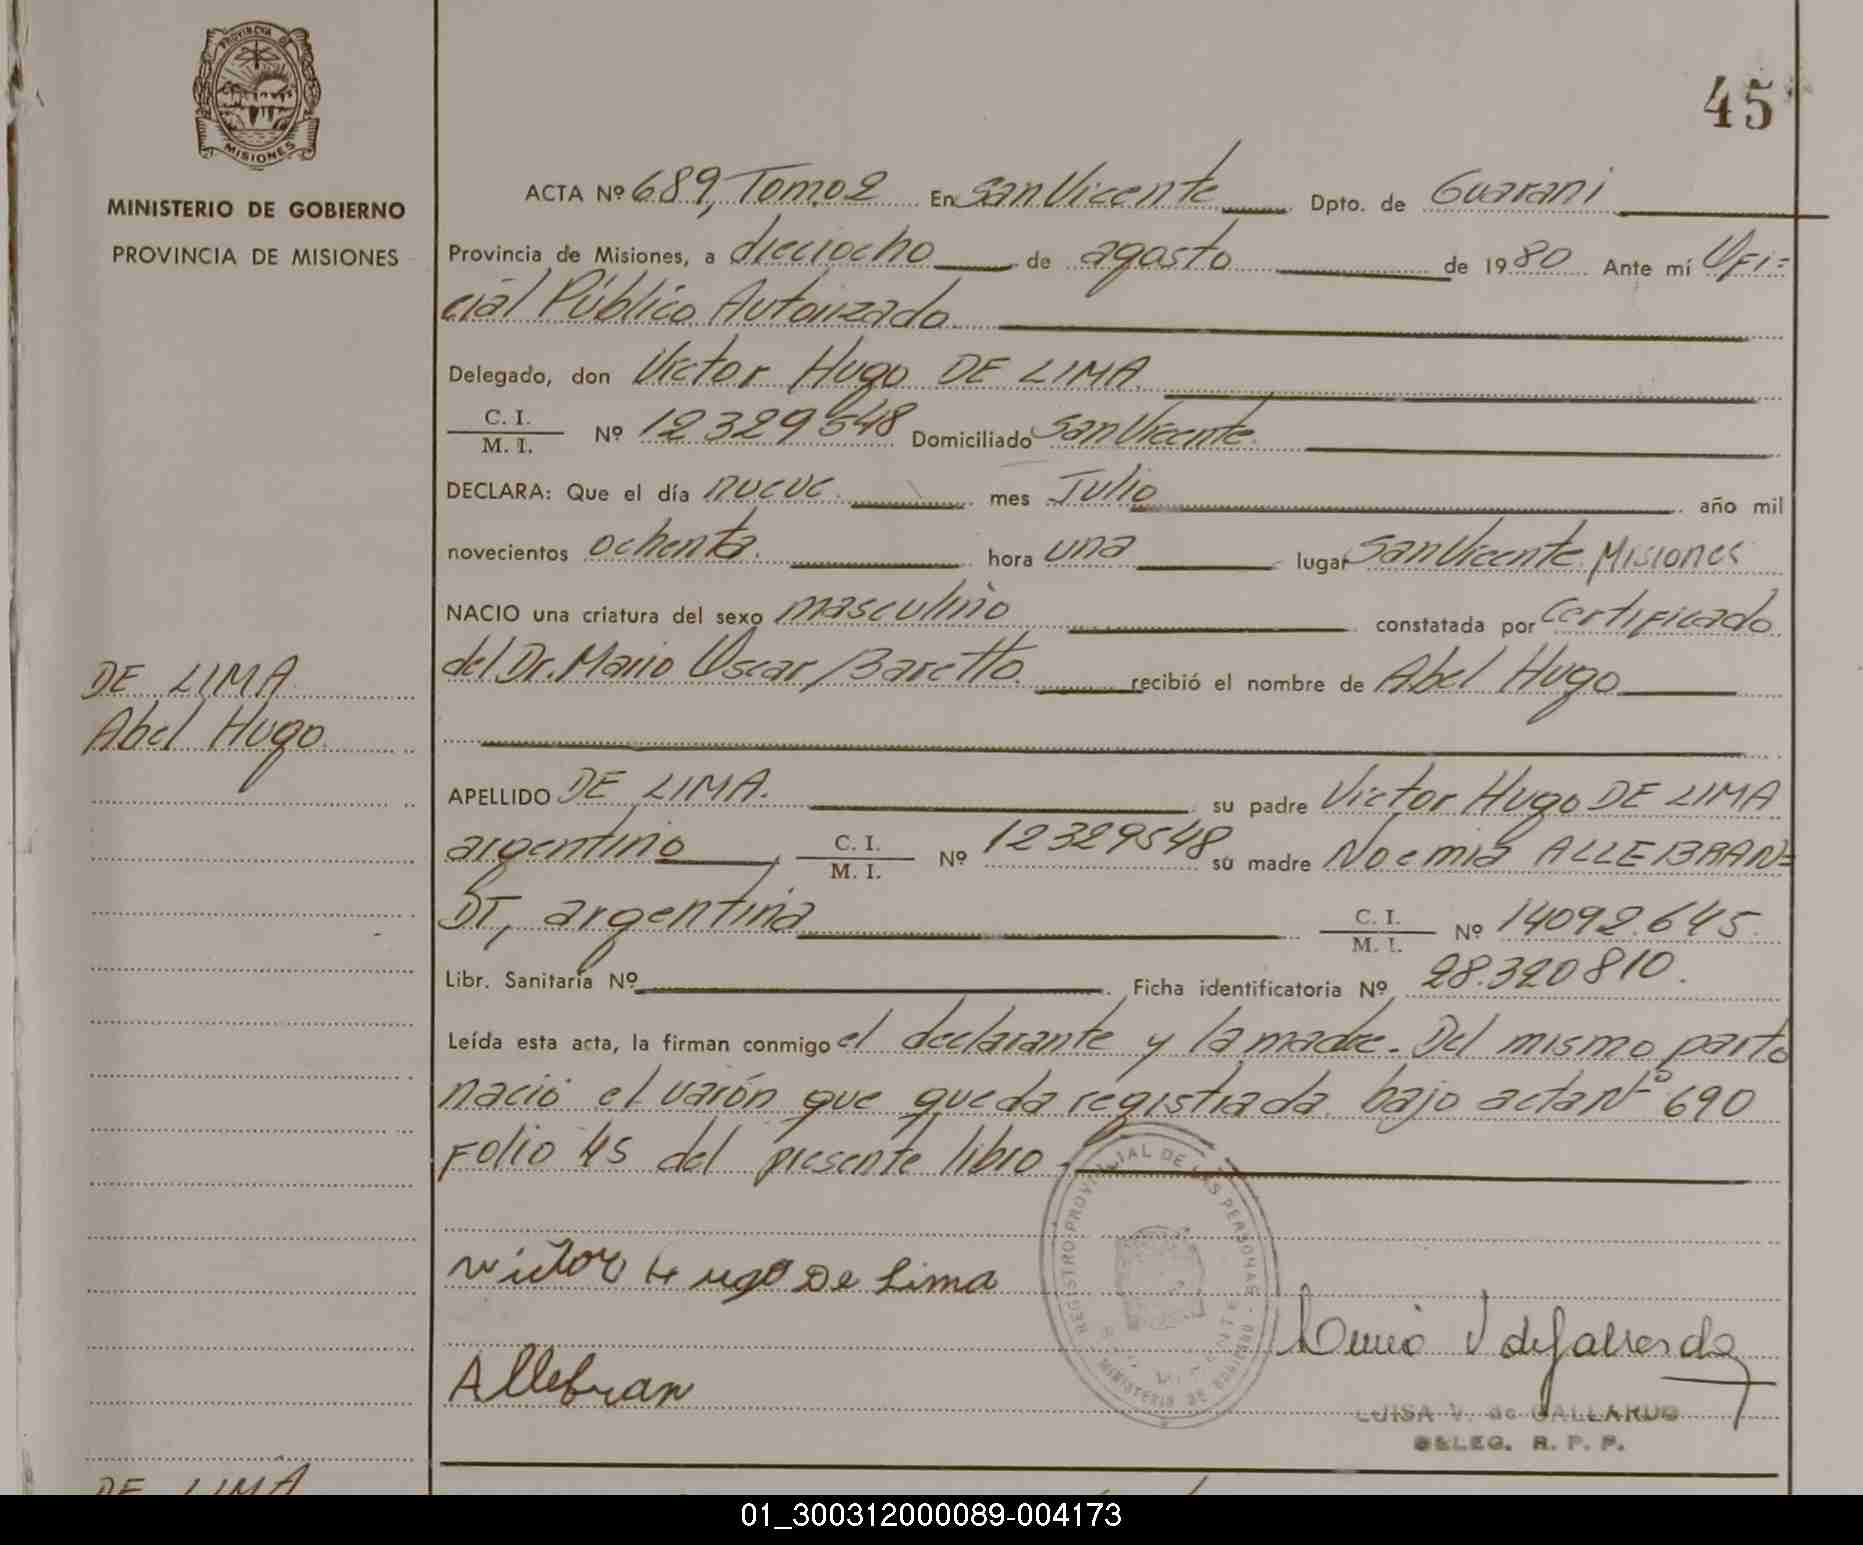 PROVINCIA DE
MISIONES
MINISTERIO DE GOBIERNO
PROVINCIA DE MISIONES
45
ACTA Nº 689, Tomo 2 En San Vicente Dpto. de Guarani
Provincia de Misiones, a dieciocho de agosto de 1980 Ante mí Ofi=
cial Público Autorizado
Delegado, don Victor Hugo DE LIMA
C. I.
M. I. Nº 12329548 Domiciliado San Vicente
DECLARA: Que el día nueve mes Julio año mil
novecientos ochenta hora una lugar San Vicente Misiones
NACIO una criatura del sexo masculino constatada por Certificado
del Dr. Mario Oscar Baretto recibió el nombre de Abel Hugo
DE LIMA
Abel Hugo
APELLIDO DE LIMA. su padre Victor Hugo DE LIMA
argentino, C. I. M. I. Nº 12329548 su madre Noemia ALLEBRAN=
DT, argentina C. I. M. I. Nº 14092.645
Libr. Sanitaria Nº Ficha identificatoria Nº 28.320810.
Leída esta acta, la firman conmigo el declarante y la madre. Del mismo parto
nació el varón que queda registrada bajo acta Nº 690
Folio 45 del presente libro
Victor Hugo De Lima
Allebran
REGISTRO PROVINCIAL DE LAS PERSONAS
MINISTERIO DE GOBIERNO
LUISA V. de GALLARDO
DELEG. R. P. P.
DE LIMA
01_300312000089-004173